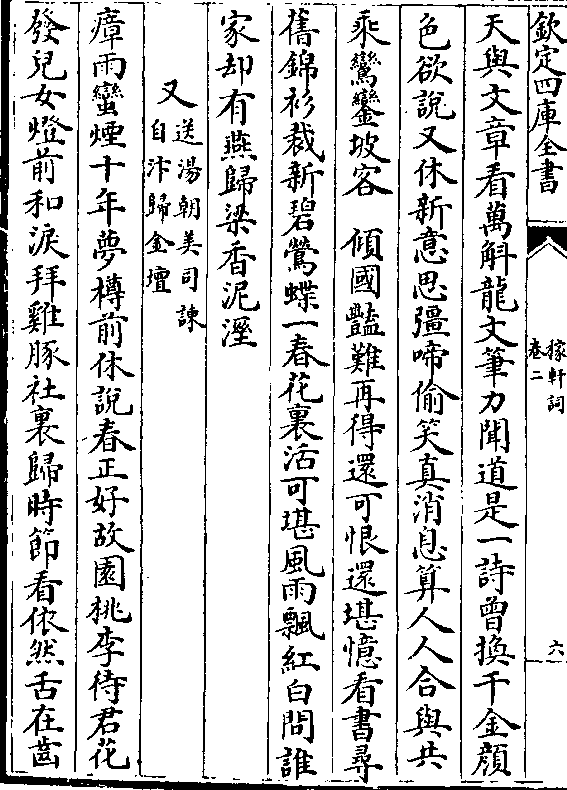 欽定四庫全書
稼軒詞
卷二
六
天與文章看萬斛龍文筆力聞道是一詩曾換千金顔
色欲說又休新意思彊啼偷笑真消息算人人合與共
乘鸞鑾坡客　傾國豔難再得還可恨還堪憶看書尋
舊錦衫裁新碧鶯蝶一春花裏活可堪風雨飄紅白問誰
家却有燕歸梁香泥溼
又
送湯朝美司諫
自汴歸金壇
瘴雨蠻煙十年夢樽前休說春正好故園桃李待君花
發兒女燈前和淚拜雞豚社裏歸時節看依然舌在齒